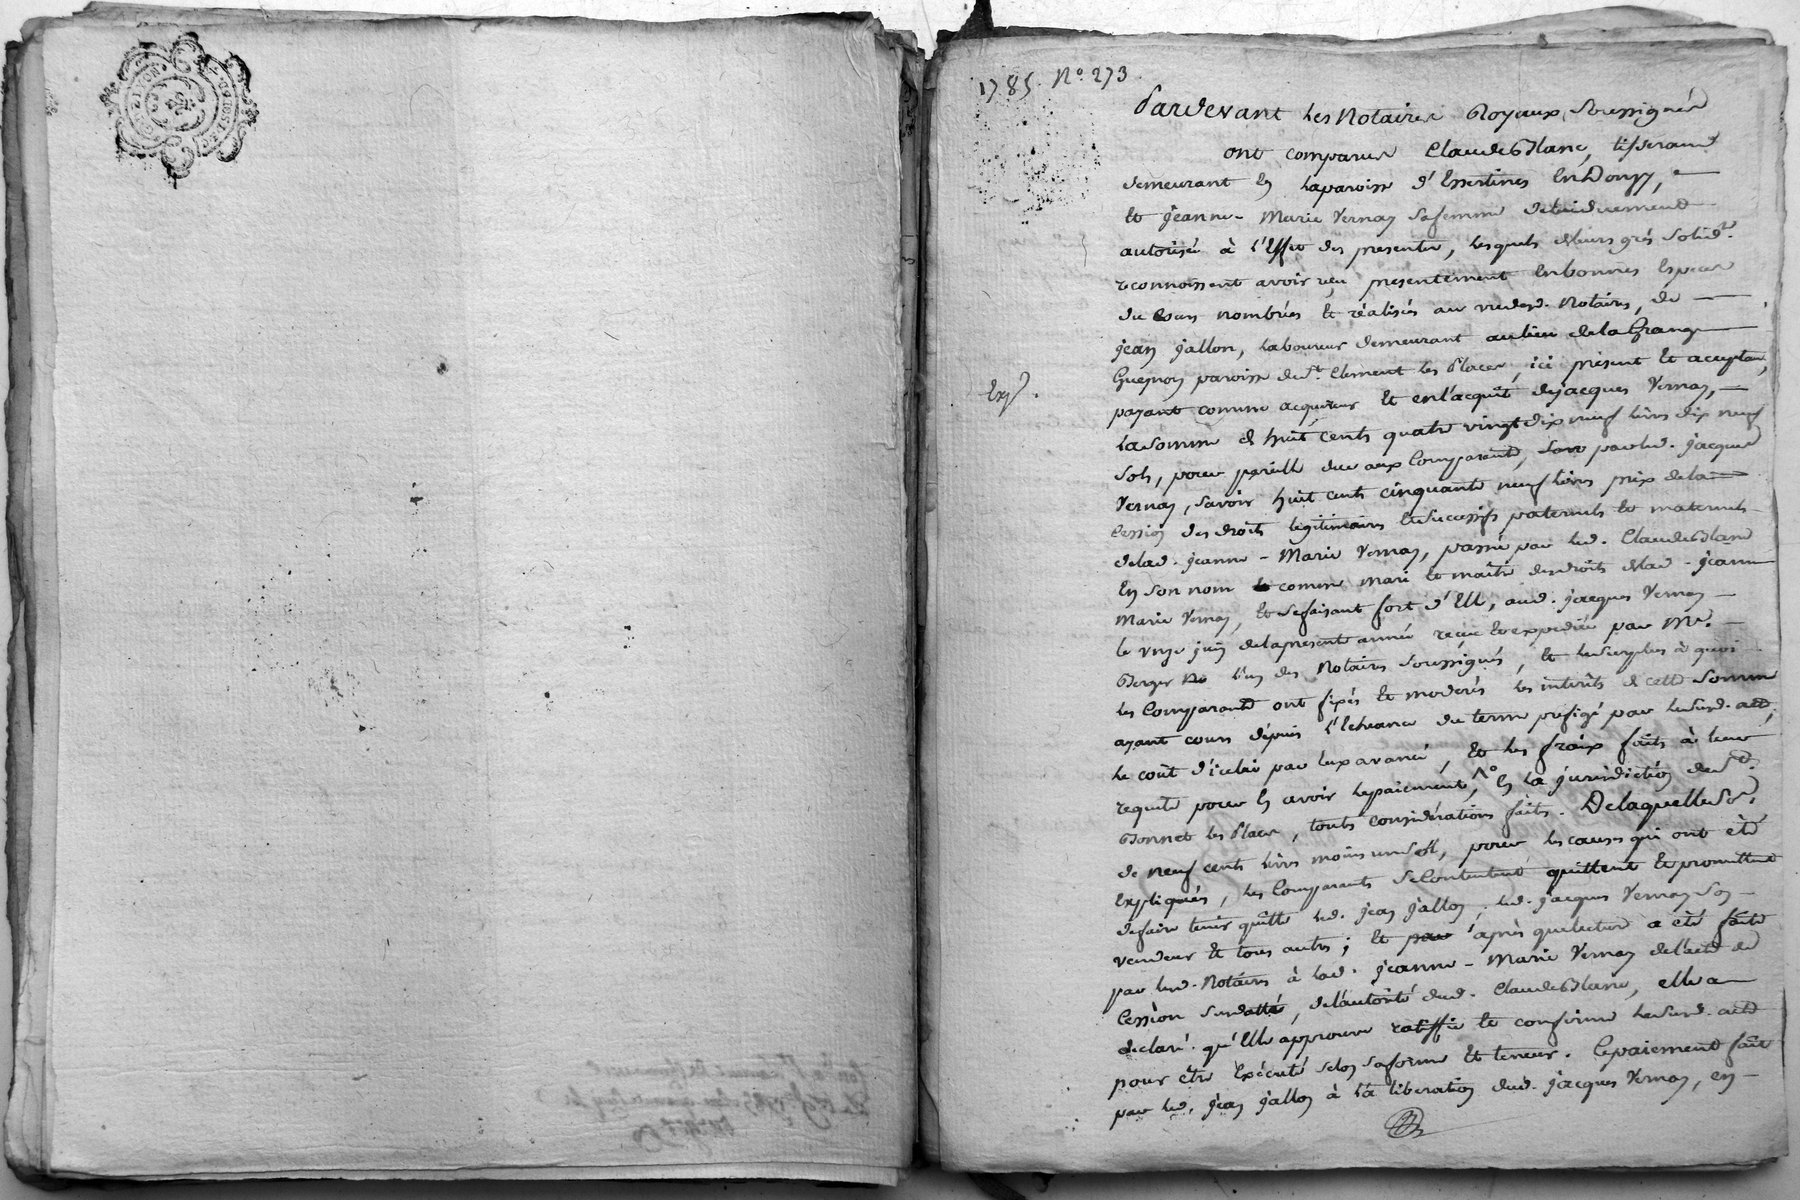 1785. N° 273.
Pardevant les Notaires Royaux Soussignés
ont comparus Claude Blanc, tisserand
demeurant en la paroisse d'Essertines en Donzy,
et jeanne-Marie Vernay sa femme de lui duement
autorisée à l'Effet des presentes, lesquels de leurs grés solid.t
reconnoissent avoir reçu presentement en bonnes Especes
du cours nombrées et réalisées au vu desd. Notaires, de
jean jallon, laboureur demeurant au lieu de la Grange
Guegnon paroisse de St. Clement les Places, ici présent et acceptant,
Exp.
payant comme acquereur et en l'acquit de jacques Vernay,
la somme de huit cents quatre vingt dix neuf livres dix neuf
sols, pour pareille due aux Comparants, par led. jacques
Vernay, savoir huit cents cinquante neuf livres prix de la
Cession des droits légitimaires et successifs paternels et maternels
de lad. jeanne-Marie Vernay, passée par led. Claude Blanc
en son nom et comme mari et maître des droits de lad. jeanne
Marie Vernay, et se faisant fort d'Elle, aud. jacques Vernay
le onze juin de la présente année reçue et expédiée par Me.
Berger No l'un des Notaires soussignés, et le surplus à quoi
les Comparants ont fixés et modérés les intérêts de cette somme
ayant cours dépuis l'échéance du terme préfigé par le susd. acte,
le coût d'icelui par eux avancé, et les fraix faits à leur
requete pour en avoir le paiement, en la jurisdiction de
Bonnet les Places, touts considérations faites. De laquelle so.e
de neuf cents livres moins un sol, pour les causes qui ont été
Expliquées, les Comparants se contentent quittent et promettent
de faire tenir quitte led. jean jallon, led. jacques Vernay son
vendeur et tous autres; et après que lecture a été faite
par lesd. Notaires à lad. jeanne-Marie Vernay de l'acte de
Cession susdatté, de l'autorité dud. Claude Blanc, elle a
déclaré qu'Elle approuve ratiffie et confirme le susd. acte
pour être Exécuté selon sa forme et teneur. Le paiement fait
par led. jean jallon à la libération dud. jacques Vernay, en